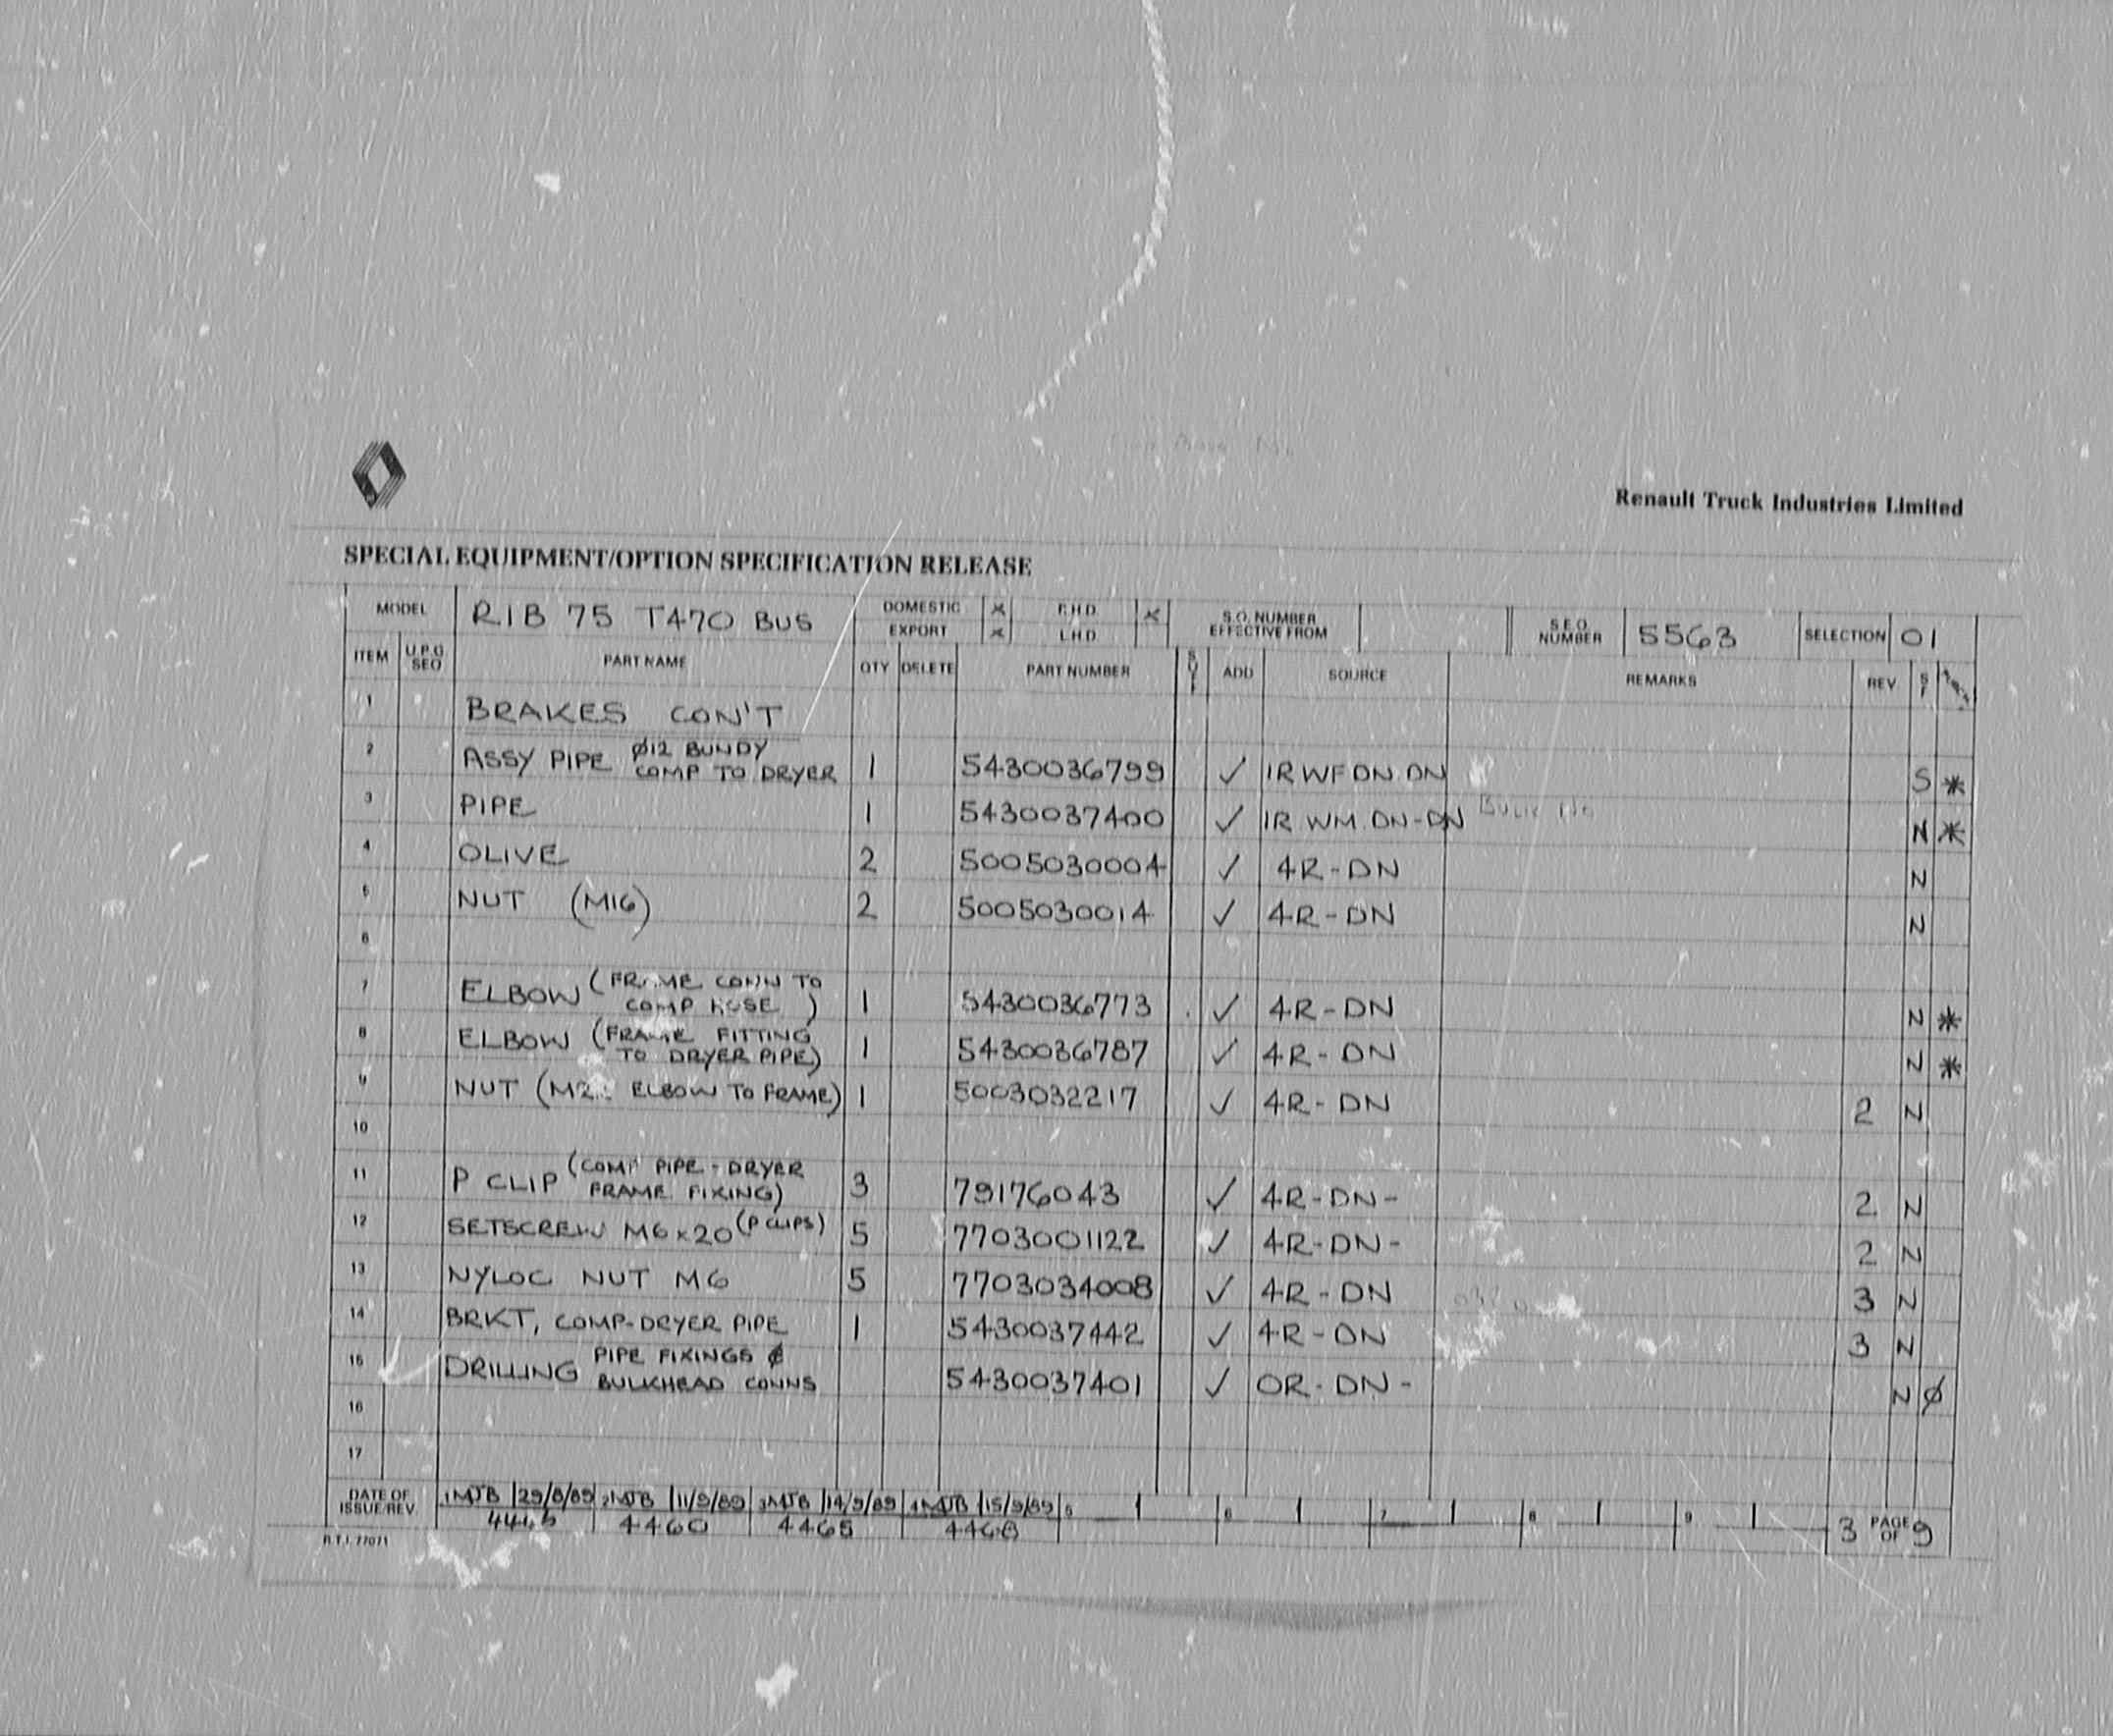 Renault Truck Industries Limited
SPECIAL EQUIPMENT/OPTION SPECIFICATION RELEASE
MODEL R1B 75 T470 BUS DOMESTIC x R.H.D. x S.O. NUMBER EFFECTIVE FROM S.E.O. NUMBER 5563 SELECTION 01
EXPORT x L.H.D.
ITEM U.P.G SEO PART NAME QTY DELETE PART NUMBER ADD SOURCE REMARKS REV
1 BRAKES CON'T
2 ASSY PIPE ø12 BUNDY COMP TO DRYER 1 5430036799 ✓ 1R WF DN DN S *
3 PIPE 1 5430037400 ✓ 1R WM DN-DN N *
4 OLIVE 2 5005030004 ✓ 4R-DN N
5 NUT (M16) 2 5005030014 ✓ 4R-DN N
6
7 ELBOW (FRAME CONN TO COMP HOSE) 1 5430036773 ✓ 4R-DN N *
8 ELBOW (FRAME FITTING TO DRYER PIPE) 1 5430036787 ✓ 4R-DN N *
9 NUT ELBOW TO FRAME) 1 5003032217 ✓ 4R-DN 2 N
10
11 P CLIP (COMP PIPE-DRYER FRAME FIXING) 3 79176043 ✓ 4R-DN- 2 N
12 SETSCREW M6x20 (P CLIPS) 5 7703001122 ✓ 4R-DN- 2 N
13 NYLOC NUT M6 5 7703034008 ✓ 4R-DN 3 N
14 BRKT, COMP-DRYER PIPE 1 5430037442 ✓ 4R-DN 3 N
15 DRILLING PIPE FIXINGS & BULKHEAD CONNS 5430037401 ✓ OR-DN- N ø
16
17
DATE OF ISSUE/REV. 1 MJB 29/8/89 2 MJB 11/9/89 3 MJB 14/9/89 4 MJB 15/9/89 5 6 7 8 9 3 PAGE OF 9
4460 4465 4468
R.T.I. 77071